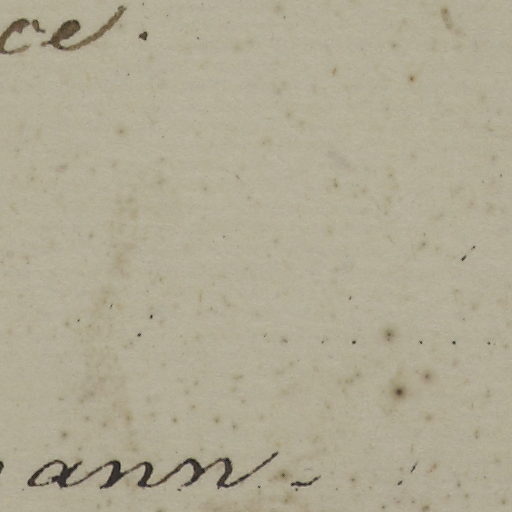 ce.
ann.